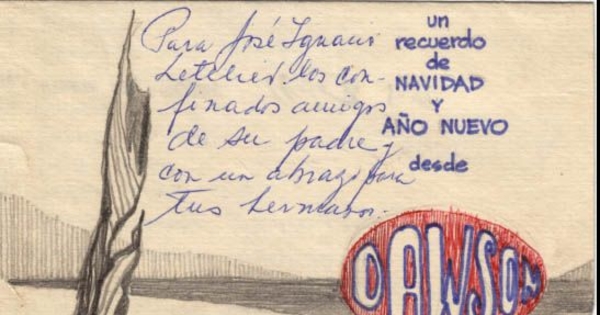 Para José Ignacio
Letelier los con-
finados amigos
de su padre y
con un abrazo para
tus hermanos.
un
recuerdo
de
NAVIDAD
Y
AÑO NUEVO
desde
DAWSON